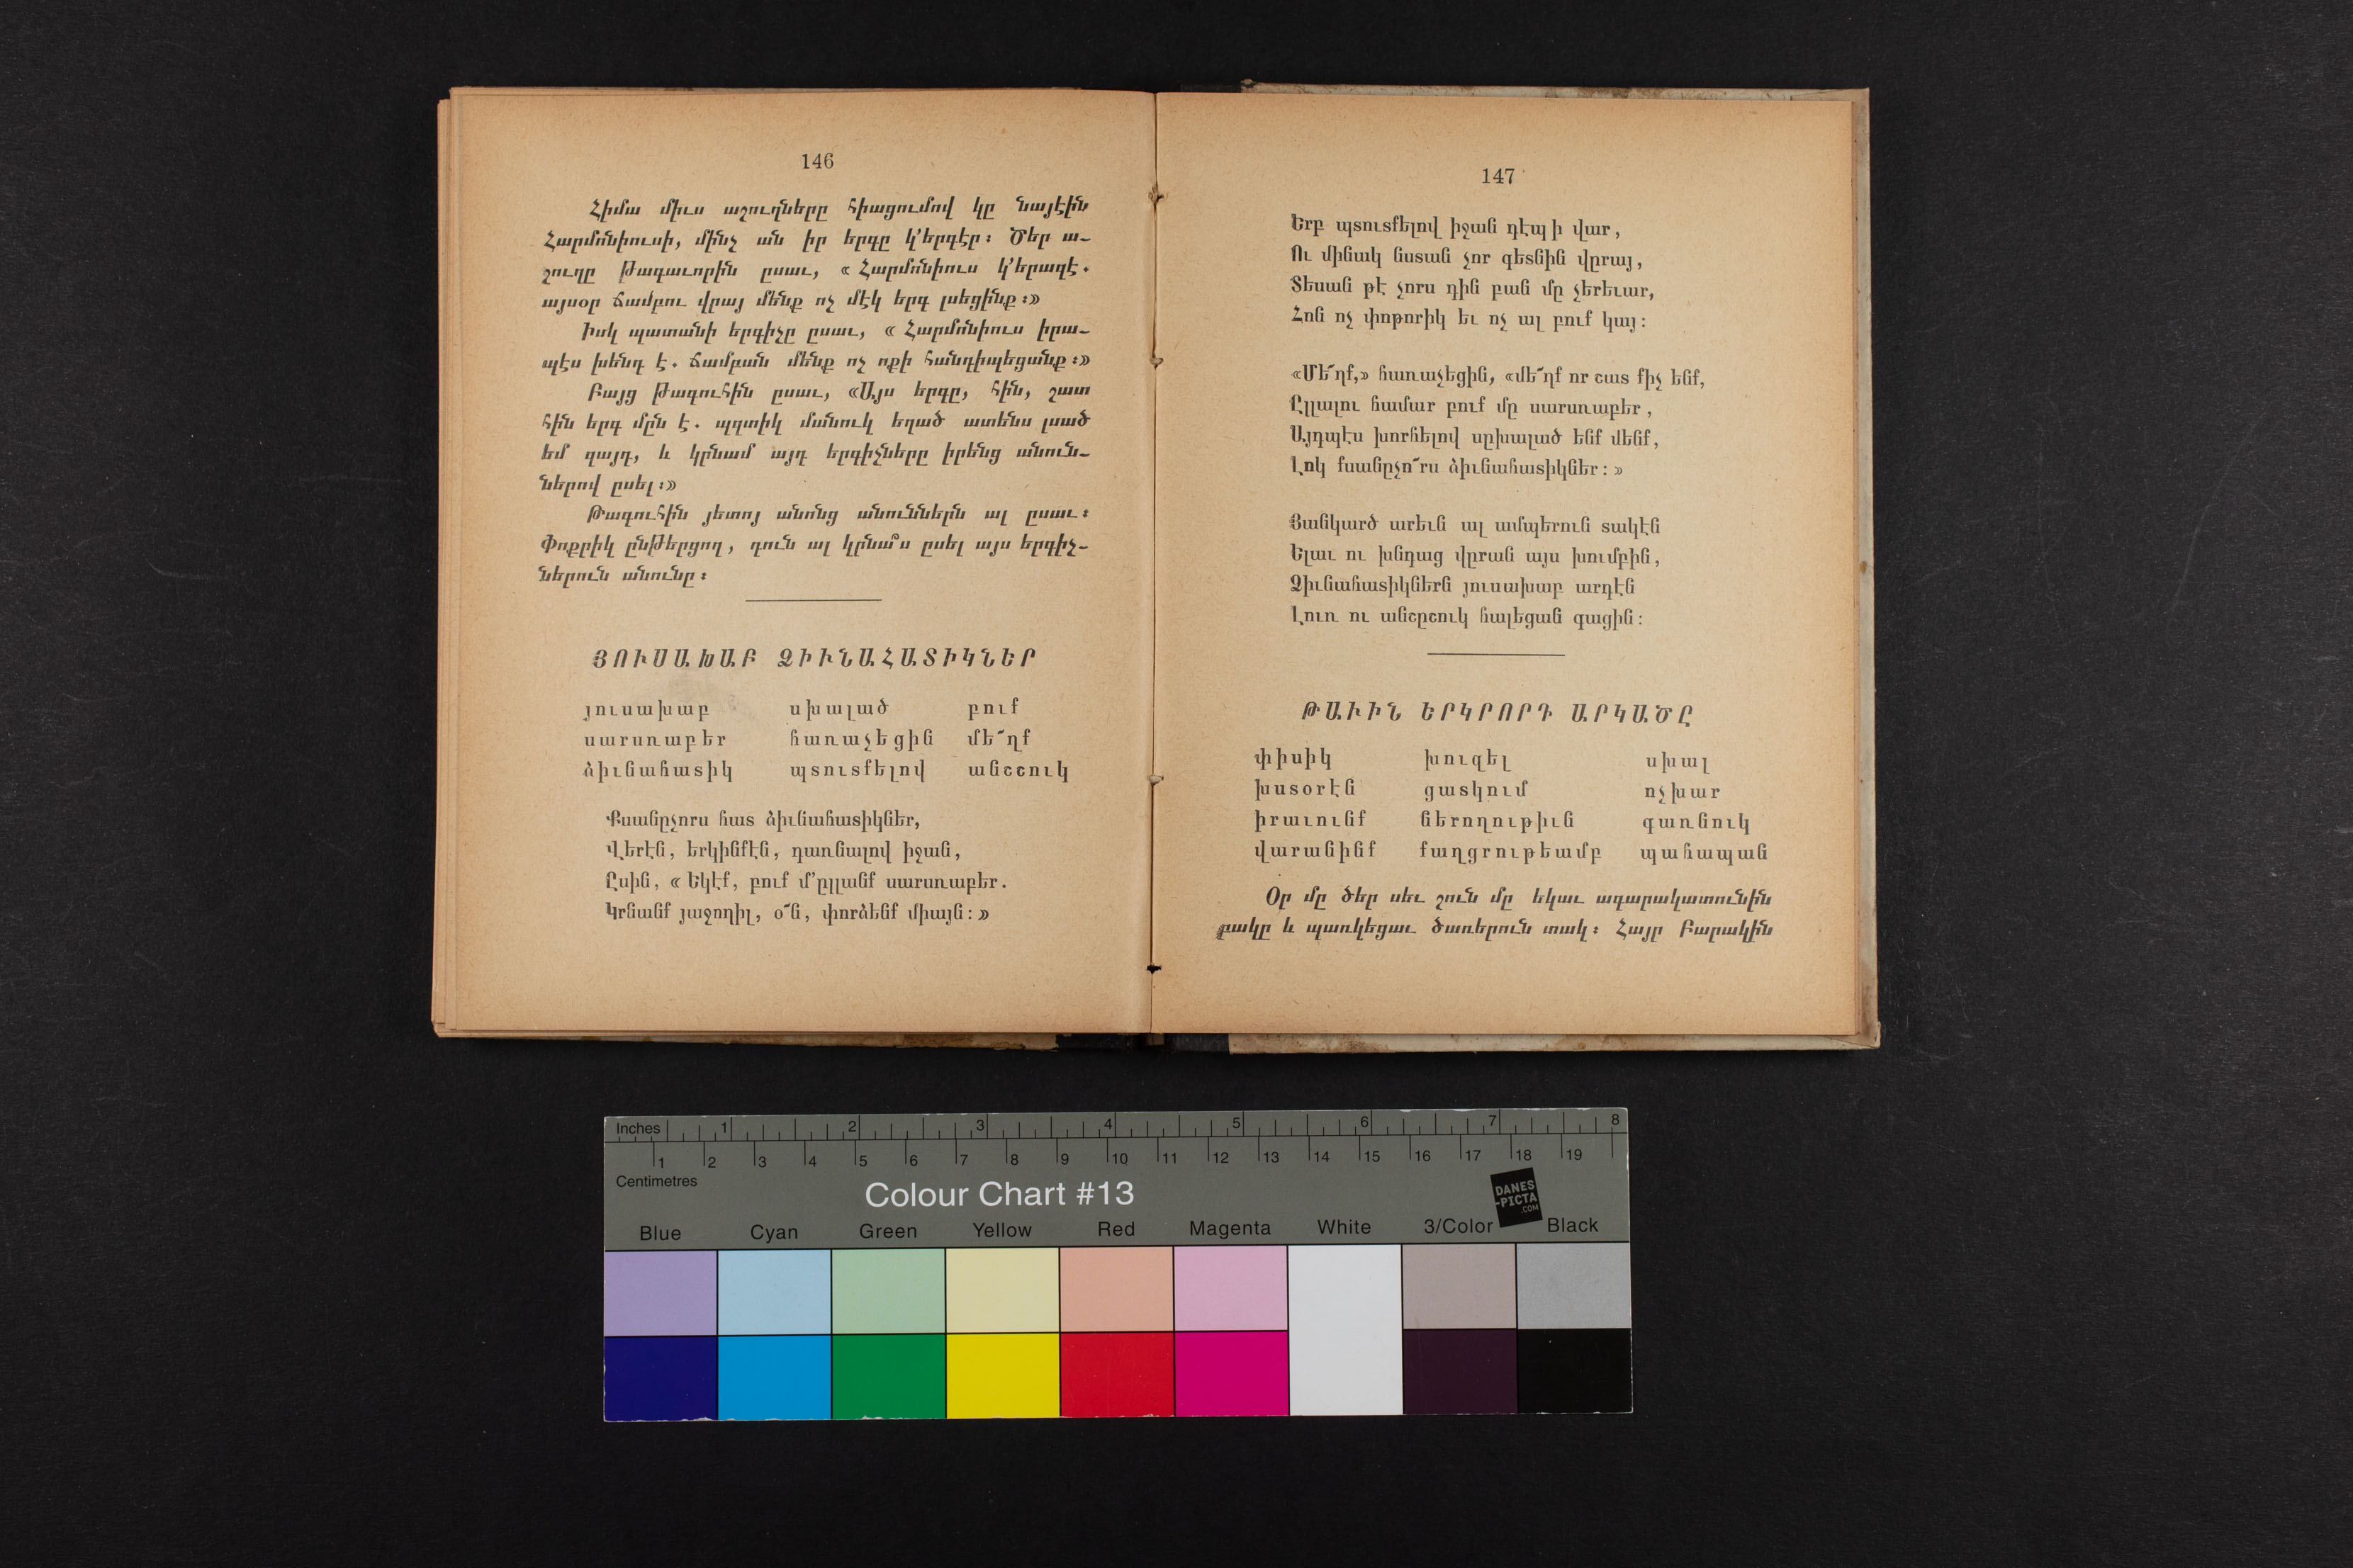 146
Հիմա միւս աշուղները հիացումով կը նայէին
Հարմոնիուսի, մինչ ան իր երգը կ՚երգէր։ Ծեր ա-
շուղը Թագաւորին ըսաւ, « Հարմոնիուս կ՚երազէ.
այսօր ճամբու վրայ մենք ոչ մէկ երգ լսեցինք։»
Իսկ պատանի երգիչը ըսաւ, « Հարմոնիուս իրա-
պէս խենդ է. ճամբան մենք ոչ ոքի հանդիպեցանք։»
Բայց Թագուհին ըսաւ, «Այս երգը, հին, շատ
հին երգ մըն է. պզտիկ մանուկ եղած ատենս լսած
եմ զայդ, և կրնամ այդ երգիչները իրենց անուն-
ներով ըսել։»
Թագուհին յետոյ անոնց անուններն ալ ըսաւ։
Փոքրիկ ընթերցող, դուն ալ կրնա՞ս ըսել այս երգիչ-
ներուն անունը։
ՅՈՒՍԱԽԱԲ ՁԻՒՆԱՀԱՏԻԿՆԵՐ
յուսախաբ սխալած բուք
սարսռաբեր հառաչեցին մե՜ղք
ձիւնահատիկ պտուտքելով անշշուկ
Քսանըչորս հատ ձիւնահատիկներ,
Վերէն, երկինքէն, դառնալով իջան,
Ըսին, « Եկէք, բուք մ՚ըլլանք սարսռաբեր.
Կրնանք յաջողիլ, օ՜ն, փորձենք միայն։»
147
Երբ պտուտքելով իջան դէպ ի վար,
Ու մինակ նստան չոր գետնին վըրայ,
Տեսան թէ չորս դին բան մը չերեւար,
Հոն ոչ փոթորիկ եւ ոչ ալ բուք կայ։
«Մե՜ղք,» հառաչեցին, «մե՜ղք որ շատ քիչ ենք,
Ըլլալու համար բուք մը սարսռաբեր,
Այդպէս խորհելով սըխալած ենք մենք,
Լոկ քսանըչո՜րս ձիւնահատիկներ։»
Յանկարծ արեւն ալ ամպերուն տակէն
Ելաւ ու խնդաց վըրան այս խումբին,
Ձիւնահատիկներն յուսախաբ արդէն
Լուռ ու անշըշուկ հալեցան գացին։
ԹԱՒԻՆ ԵՐԿՐՈՐԴ ԱՐԿԱԾԸ
փիսիկ խուզել սխալ
խստօրէն ցատկում ոչխար
իրաւունք ներողութիւն գառնուկ
վարանինք քաղցրութեամբ պահապան
Օր մը ծեր սեւ շուն մը եկաւ ագարակատունին
բակը և պառկեցաւ ծառերուն տակ։ Հայր Բարակին
Inches 1 2 3 4 5 6 7 8
1 2 3 4 5 6 7 8 9 10 11 12 13 14 15 16 17 18 19
Centimetres
Colour Chart #13
DANES
-PICTA
.COM
Blue Cyan Green Yellow Red Magenta White 3/Color Black